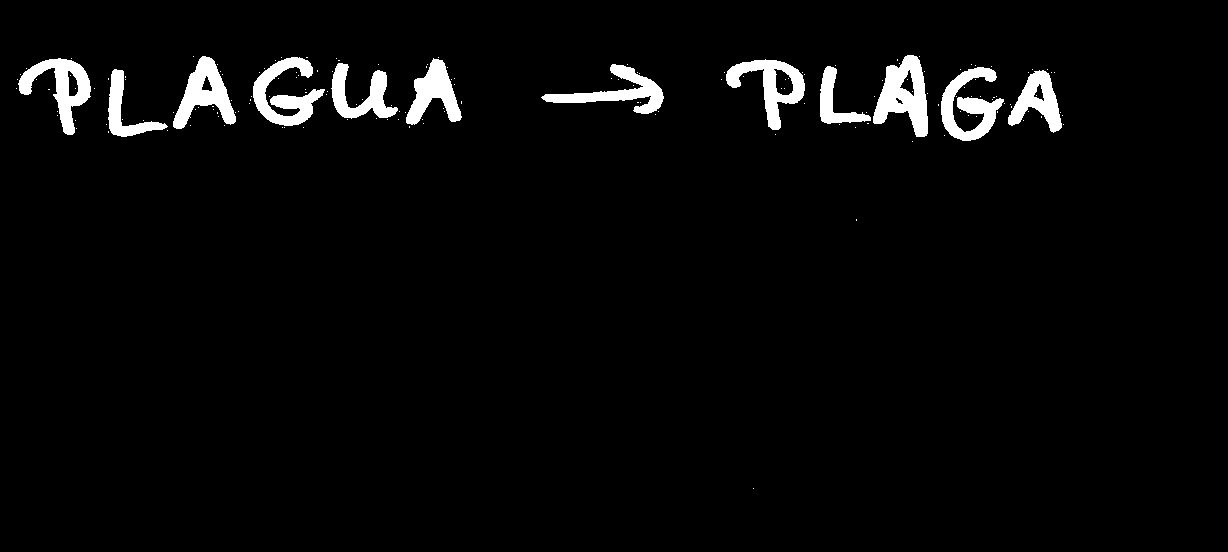 PLAGUA → PLAGA